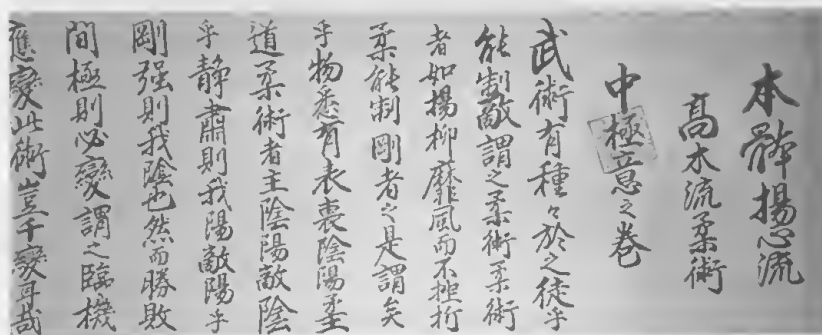 本體揚心流
高木流柔術
中極意之卷
武術有種々於之徒手
能制敵謂之柔術柔術
者如揚柳靡風而不挫折
柔能制剛者之是謂矣
乎物悉有表裏陰陽柔
道柔術者主陰陽敵陰
乎靜肅則我陽敵陽乎
剛强則我陰也然而勝敗
間極則必變謂之臨機
應變此術豈千變耳哉